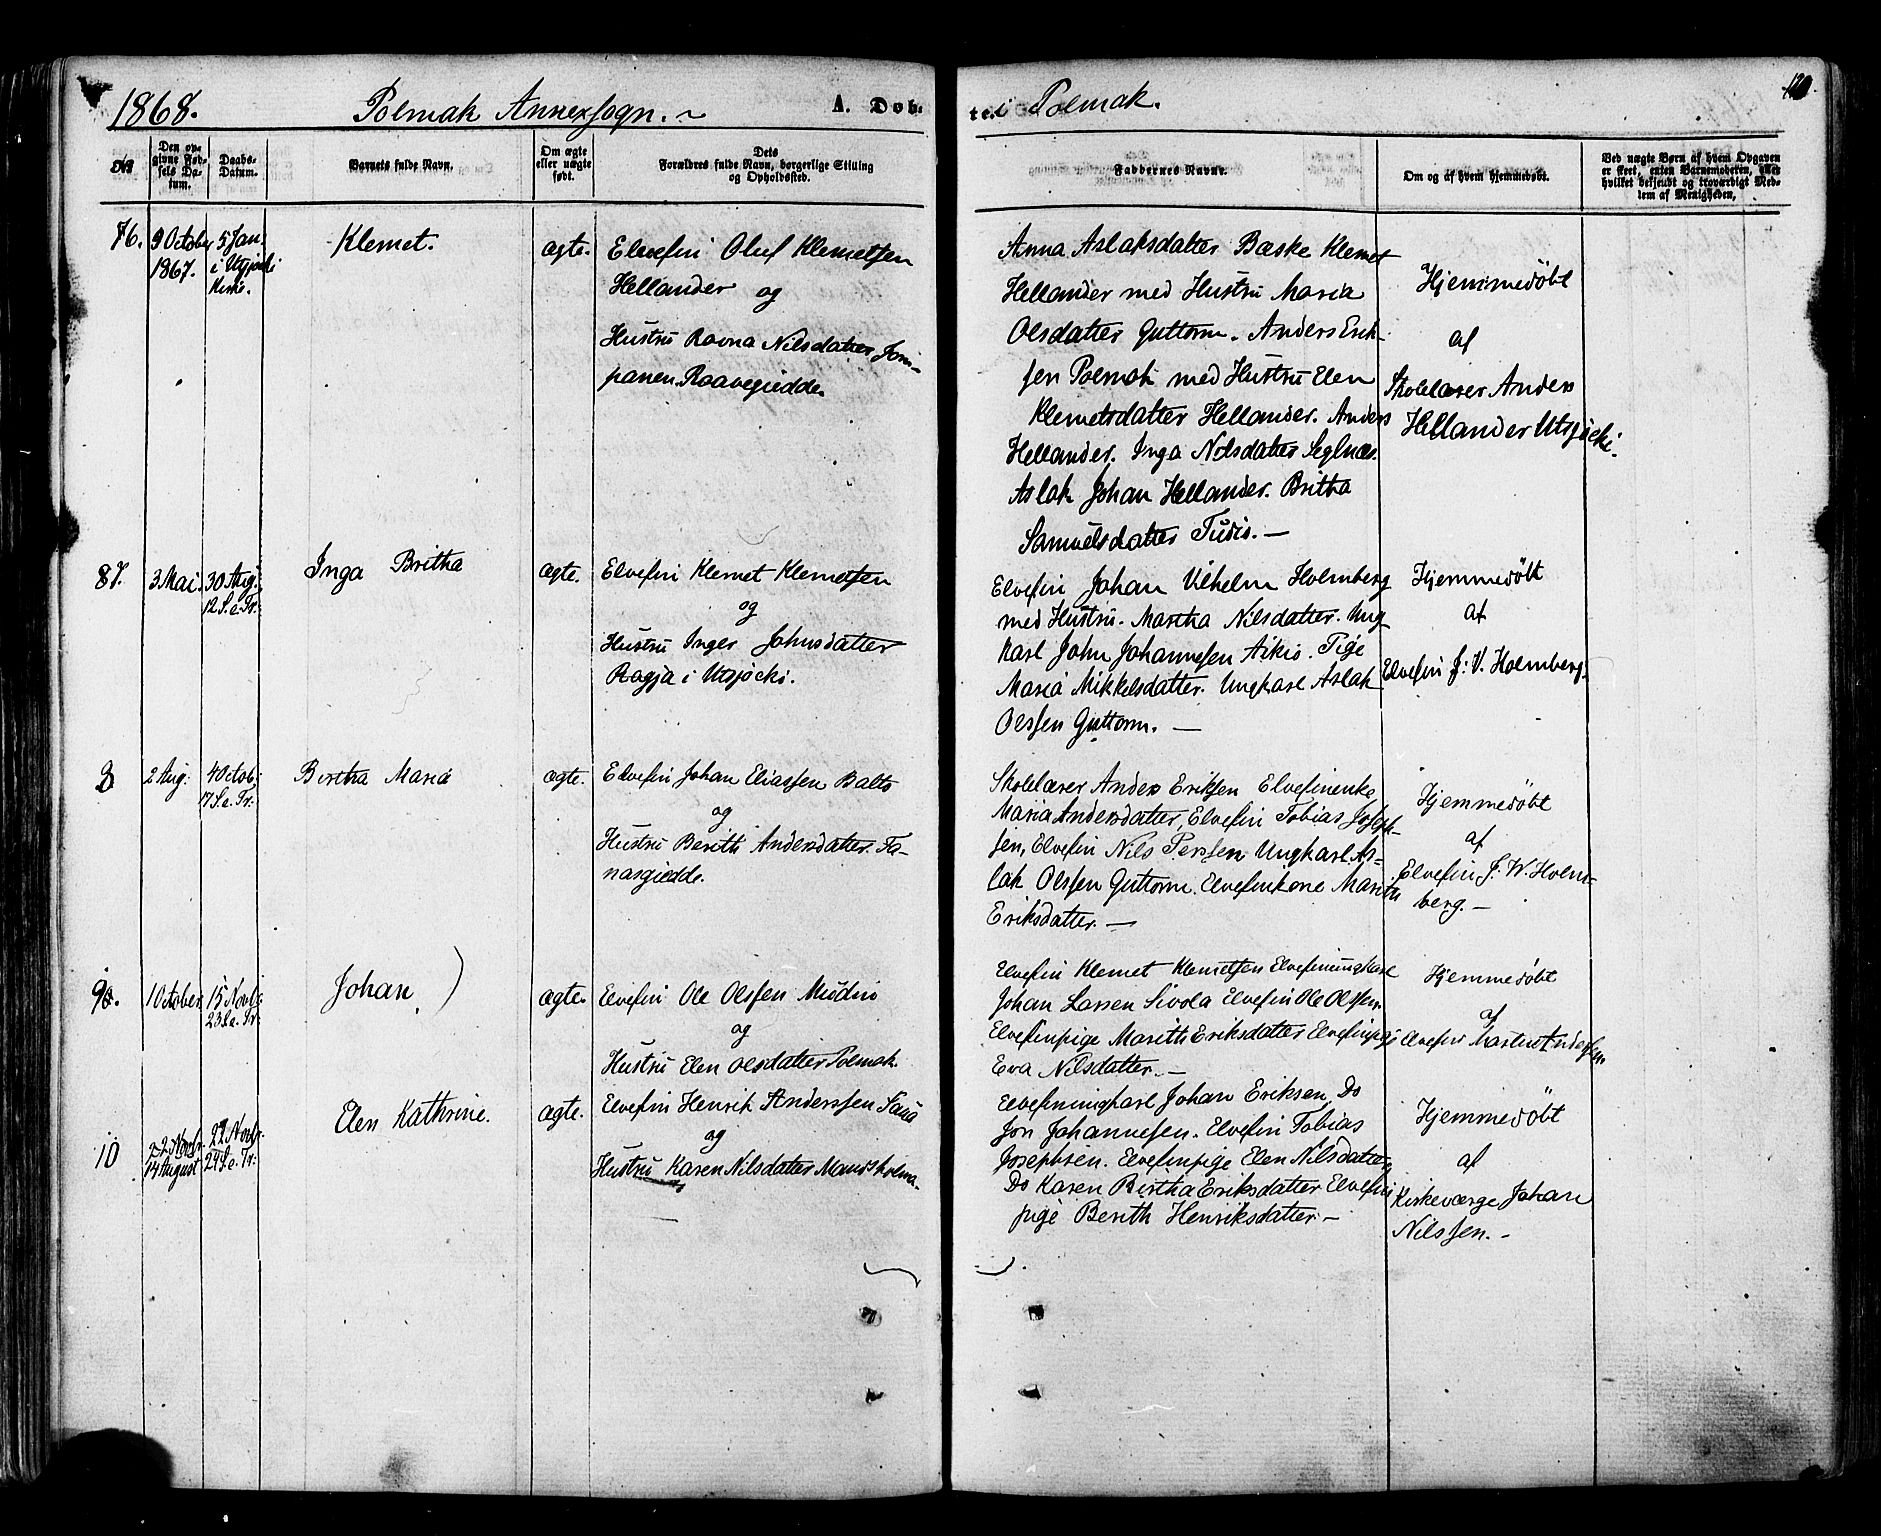 1868. Polmak Annexsogn. A. Døb-
te i Polmak.
120.
No
Den op-
givne Fød-
sels Da-
tum.
Daabs-
Datum.
Barnets fulde Navn.
Om ægte
eller uægte
født.
Dets
Forældres fulde Navn, borgerlige Stilling
og Opholdssted.
Faddernes Navne.
Om og af hvem hjemmedøbt.
Ved uægte Børn af hvem Opgaven
er skeet, enten Barnemoderen, eller
hvilket bekjendt og troværdigt Med-
lem af Menigheden.
76.
9 October
1867.
5 Jan.
i Utsjocki
Kirke.
Klemet.
ægte.
Elvefin Oluf Klemetsen
Hellander og
Hustru Ravna Nilsdatter
Roavvegiedde.
Anna Aslaksdatter Bæske Klemet
Hellander med Hustru Maria
Olsdatter Guttorm. Anders Erik-
sen Polmak med Hustru Elen
Klemetsdatter Hellander. Anders
Hellander. Inga Nilsdatter Seglnæs.
Aslak Johan Hellander. Britha
Samuelsdatter Tudis. —
Hjemmedøbt
af
Skolelærer Anders
Hellander Utsjocki.
87.
3 Mai.
30 Aug.
12 S. e. Tr.
Inga Britha
ægte.
Elvefin Klemet Klemetsen
og
Hustru Inger Johnsdatter
Ragja i Utsjocki.
Elvefin Johan Vilhelm Holmberg
med Hustru. Martha Nilsdatter. Ung
Karl John Johannesen Aikio. Pige
Maria Mikkelsdatter. Ungkarl Aslak
Olssen Guttorm. —
Hjemmedøbt
af
Elvefin J: V. Holmberg.
8
2 Aug:
4 Octob:
17 S. e. Tr:
Birtha Maria
ægte.
Elvefin Johan Eliassen Balto
og
Hustru Berith Andersdatter Ta-
nasgiedde.
Skolelærer Anders Eriksen Elvefinenke
Maria Andersdatter, Elvefin Tobias Joseph-
sen, Elvefin Nils Perssen Ungkarl As-
lak Olssen Guttorm. Elvefinkone Marith
Eriksdatter. —
Hjemmedøbt
af
Elvefin J. W. Holm-
berg. —
9.
1 October
15 Novb:
23 S. e. Tr:
Johan
ægte.
Elvefin Ole Olssen
og
Hustru Elen Olsdatter Polmak.
Elvefin Klemet Klemetsen Elvefinungkarl
Johan Larsen Sivola Elvefin Ole Olssen
Elvefinpige Marith Eriksdatter Elvefinpige
Eva Nilsdatter. —
Hjemmedøbt
af
Elvefin
10
22 Novb.
14 August
22 Novb.
24 S. e. Tr:
Elen Kathrine.
ægte.
Elvefin Henrik Anderssen
og
Hustru Karen Nilsdatter Mandsholma.
Elvefinungkarl Johan Eriksen, Do
Jon Johannesen. Elvefin Tobias
Josephsen. Elvefinpige Elen Nilsdatter
Do Karen Birtha Eriksdatter Elvefin
pige Berith Henriksdatter. —
Hjemmedøbt
af
Kirkeværge Johan
Nilssen. —